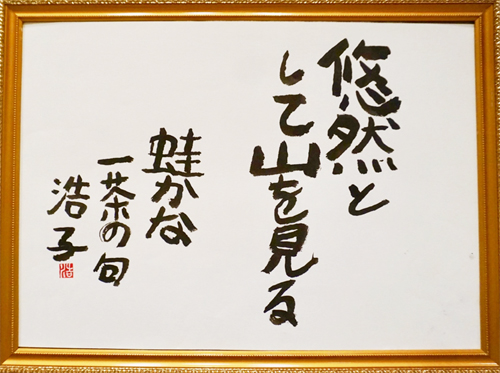 悠然と
して山を見る
蛙かな
一茶の句
浩子
浩